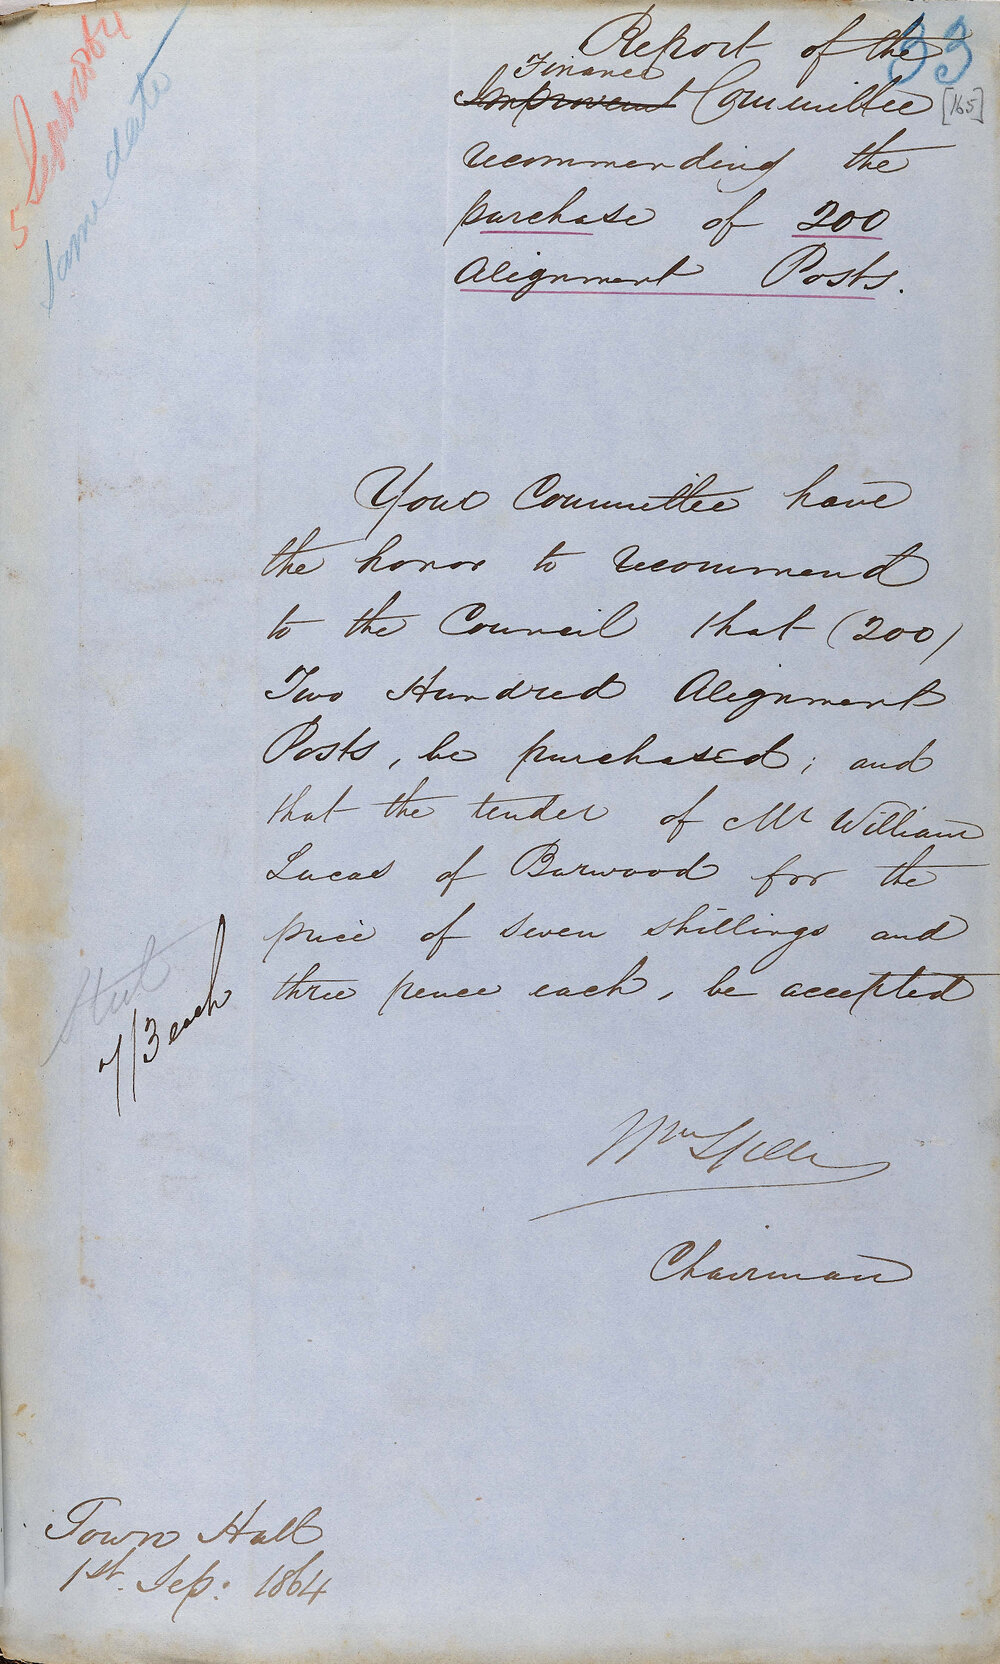 33
[165]
Report of the
Finance
Improvement Committee
recommending the
purchase of 200
Alignment Posts.
same date
Your Committee have
the honor to recommend
to the Council that (200)
Two Hundred Alignment
Posts, be purchased; and
that the tender of Mr William
Lucas of Burwood for the
price of seven shillings and
three pence each, be accepted
7/3 each
Wm
Chairman
Town Hall
1st. Sep: 1864